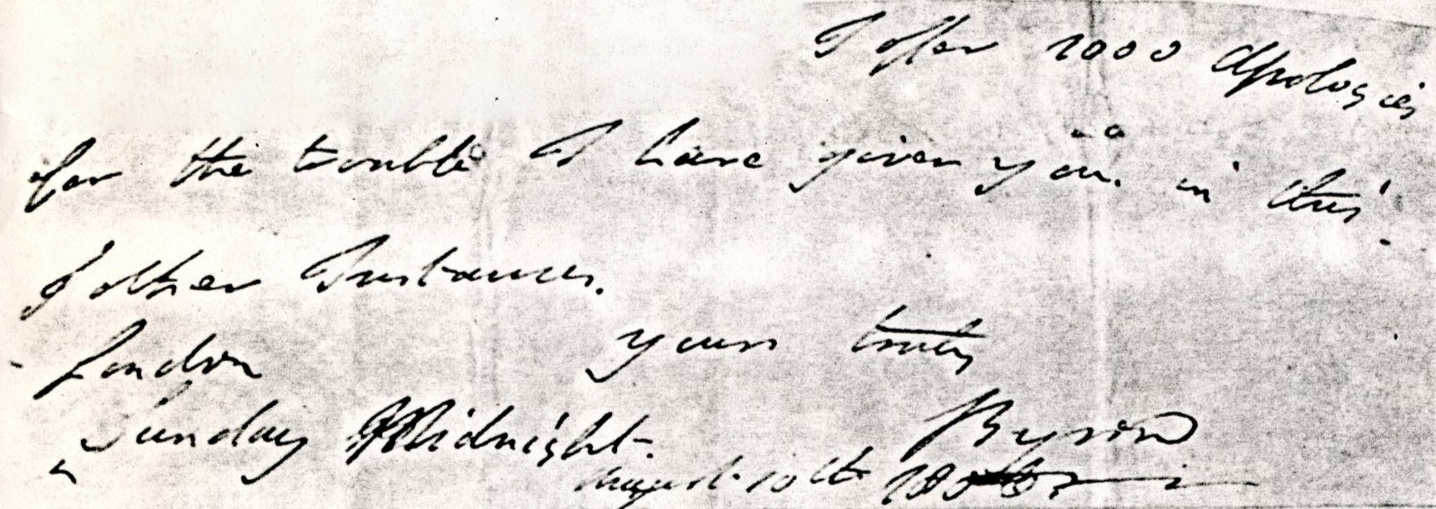 I offer 1000 Apologies
for the trouble I have given you in this
& other Instances.
London yours truly
Sunday Midnight. Byron
August 10th